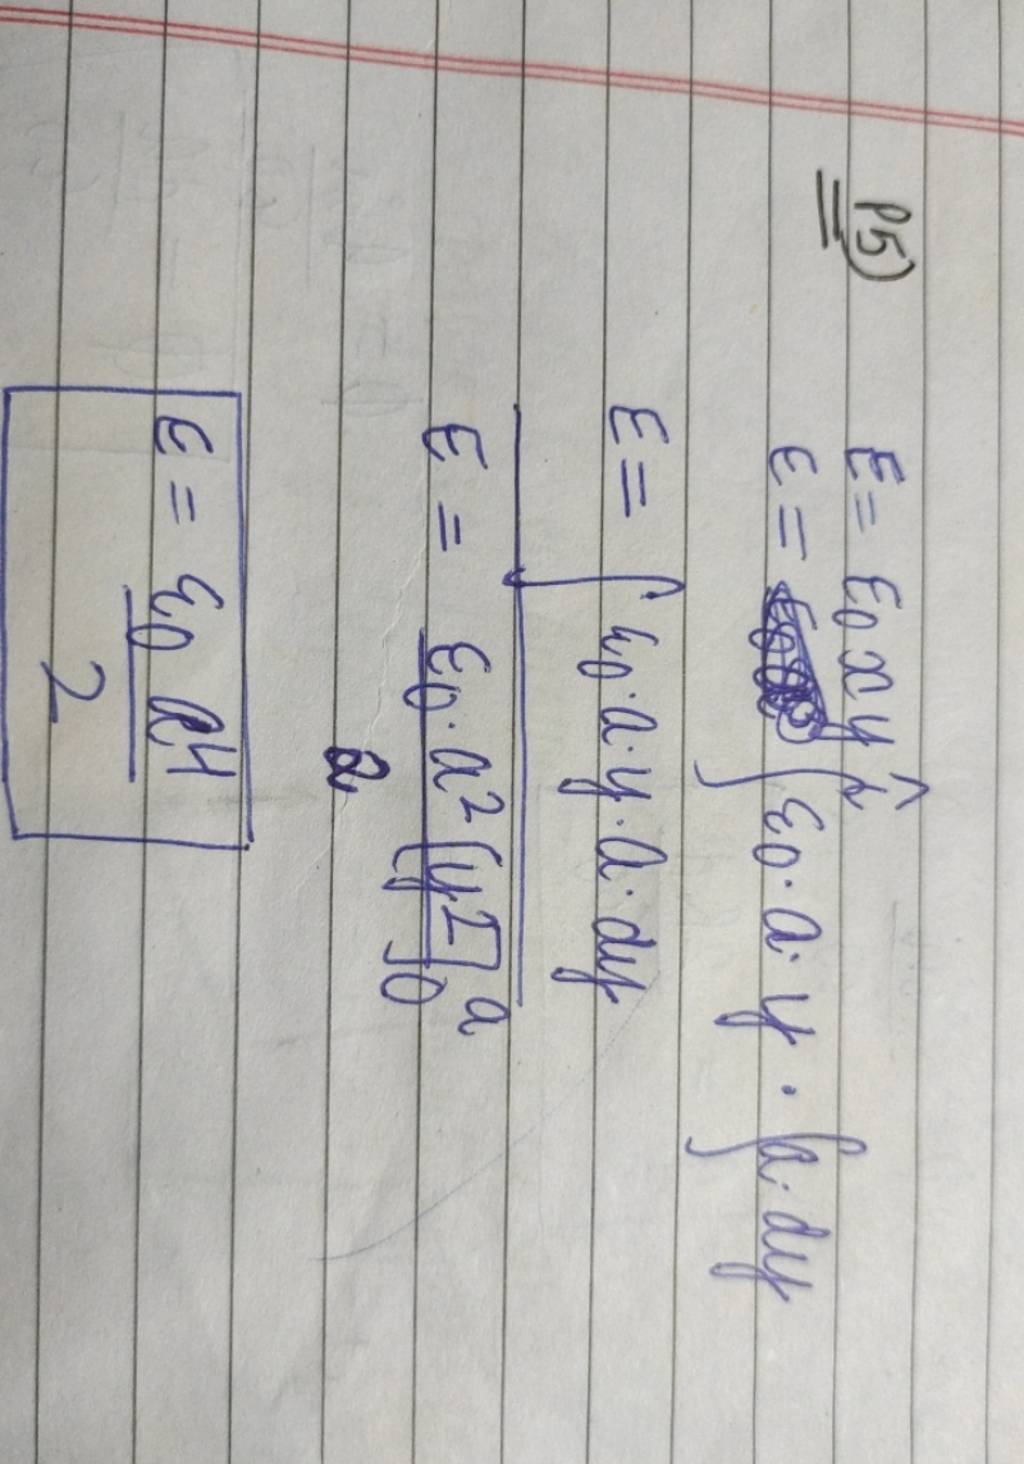 P5)
E = E₀xy k̂
E = ∫ε₀·a·y·∫a·dy
E = ∫ε₀·a·y·a·dy
E = ε₀·a²[y²]₀ᵃ / 2
E = ε₀a⁴ / 2